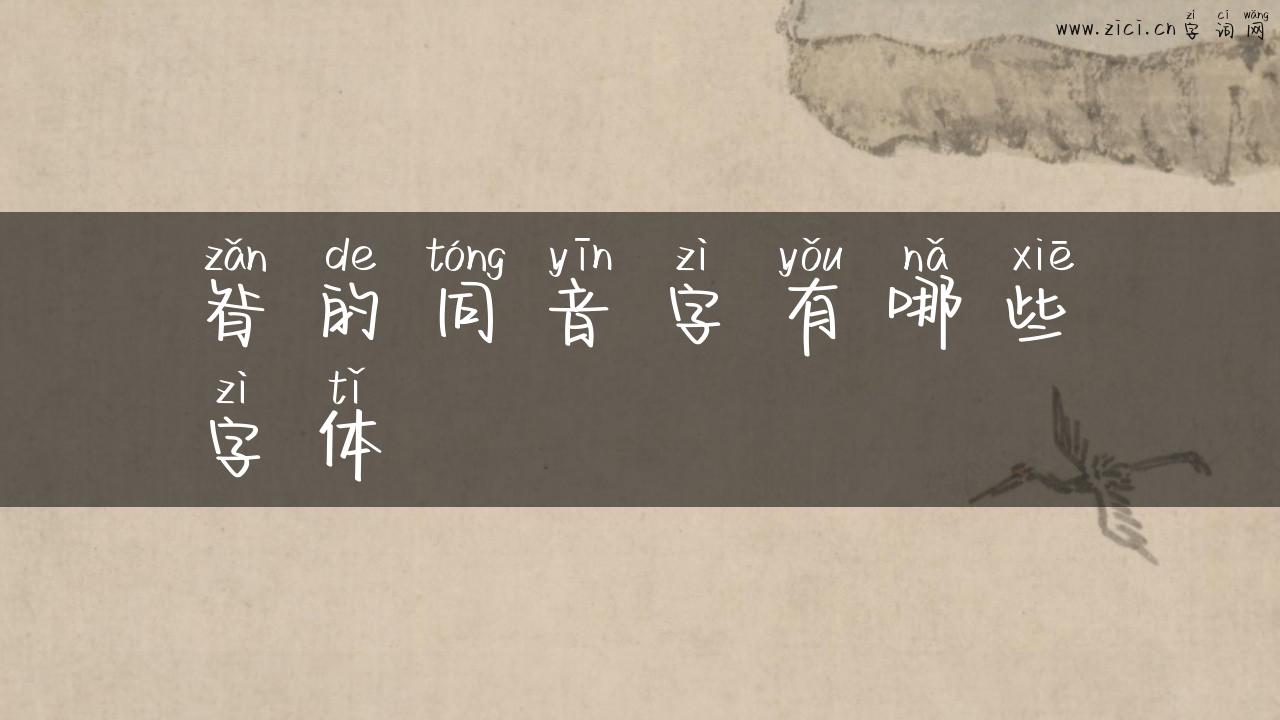 zì cí wǎng
www.zici.cn 字 词 网
zǎn de tóng yīn zì yǒu nǎ xiē
昝 的 同 音 字 有 哪 些
zì tǐ
字 体